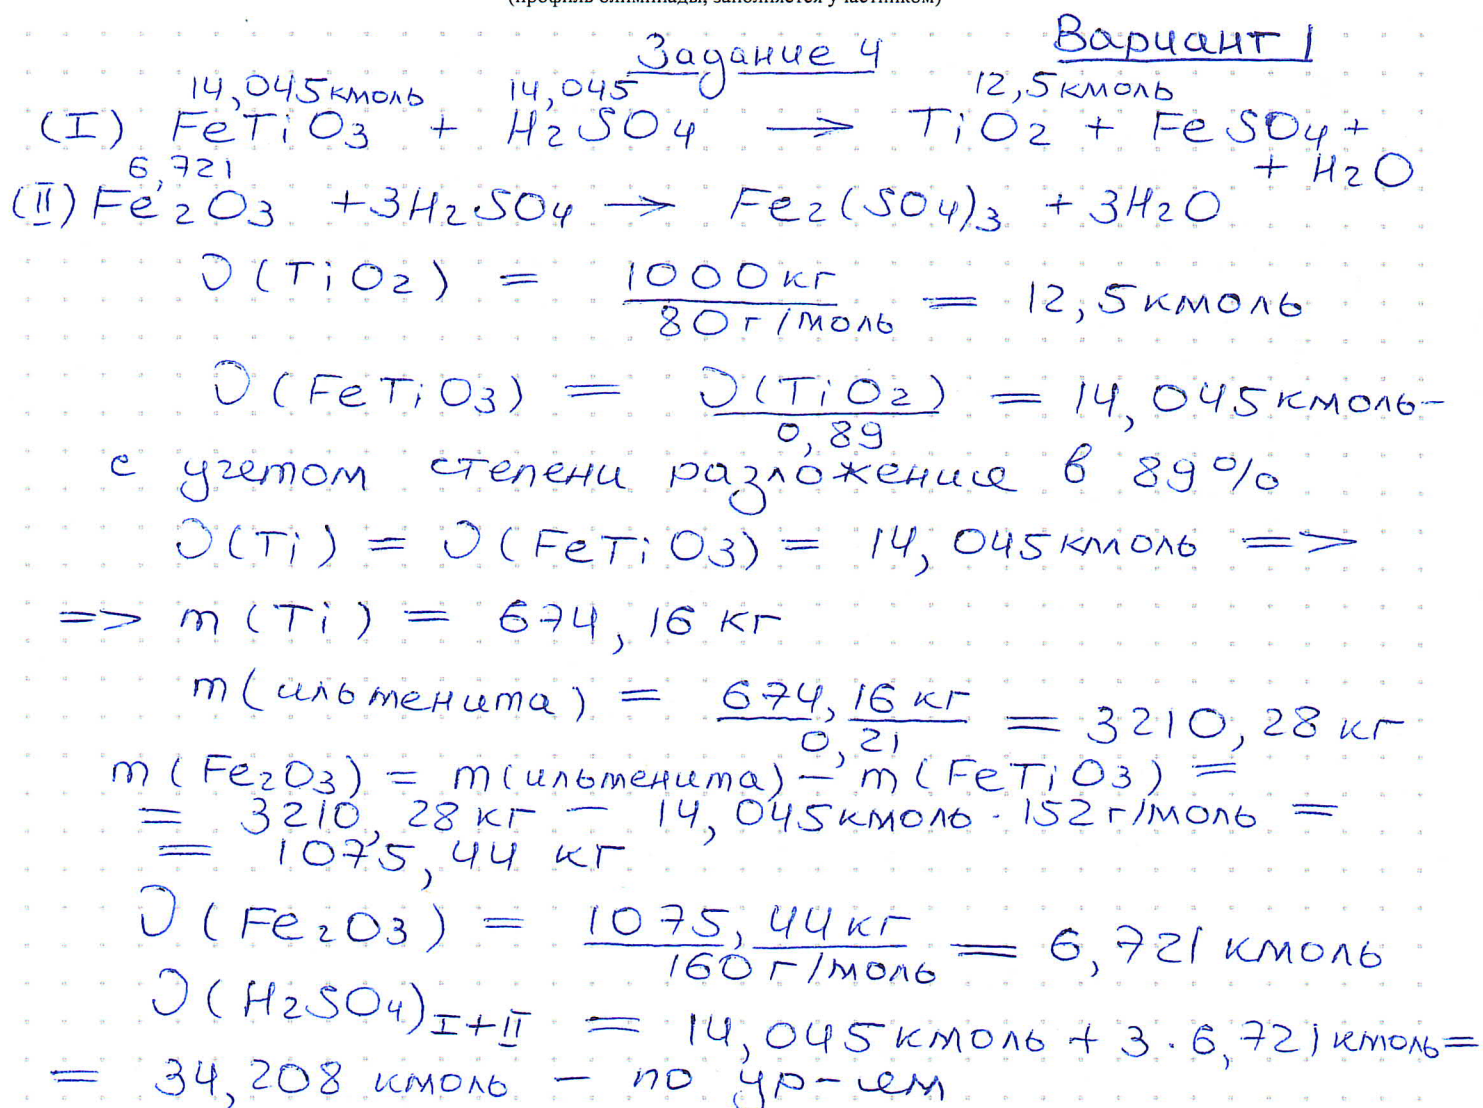 (профиль олимпиады, заполняется участником)
Задание 4 Вариант 1
14,045кмоль 14,045 12,5кмоль
(I) FeTiO3 + H2SO4 → TiO2 + FeSO4 +
+ H2O
6,721
(II) Fe2O3 + 3H2SO4 → Fe2(SO4)3 + 3H2O
ν(TiO2) = 1000кг / 80г/моль = 12,5кмоль
ν(FeTiO3) = ν(TiO2) / 0,89 = 14,045кмоль-
с учетом степени разложение в 89%
ν(Ti) = ν(FeTiO3) = 14,045кмоль =>
=> m(Ti) = 674,16 кг
m(ильменита) = 674,16 кг / 0,21 = 3210,28 кг
m(Fe2O3) = m(ильменита) - m(FeTiO3) =
= 3210,28 кг - 14,045кмоль · 152г/моль =
= 1075,44 кг
ν(Fe2O3) = 1075,44кг / 160г/моль = 6,721 кмоль
ν(H2SO4)I+II = 14,045кмоль + 3 · 6,721кмоль=
= 34,208 кмоль - по ур-ем